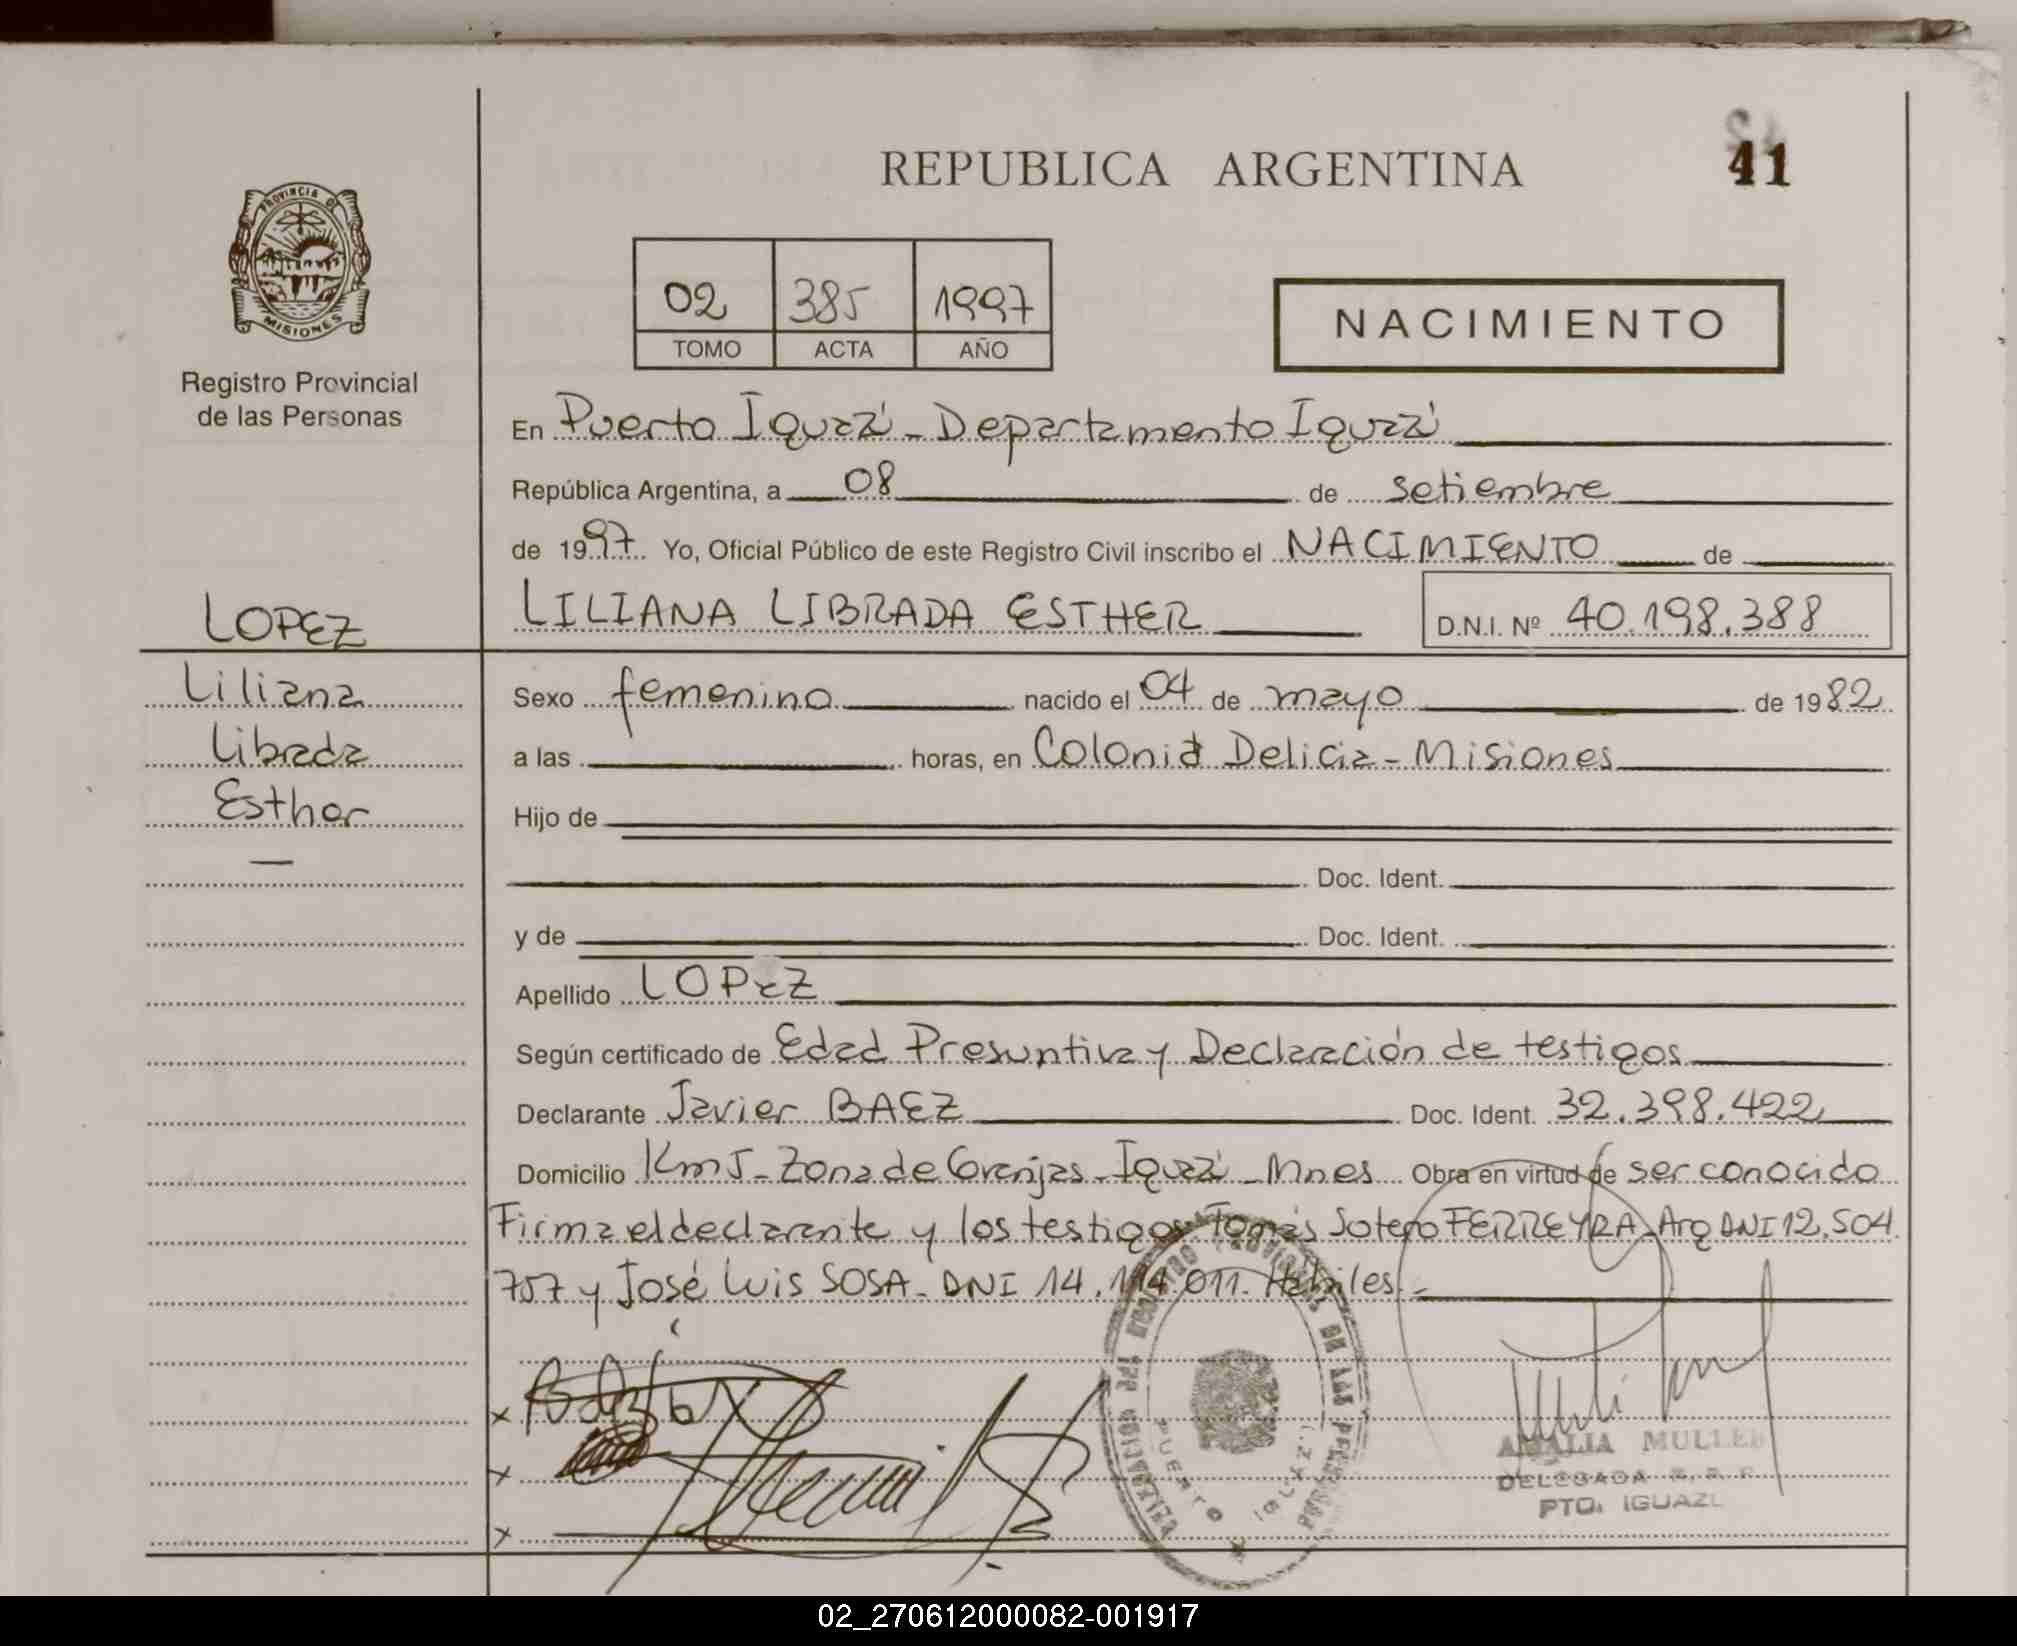 REPUBLICA ARGENTINA
41
PROVINCIA DE
MISIONES
Registro Provincial
de las Personas
02 385 1997
TOMO ACTA AÑO
NACIMIENTO
En Puerto Iguazú - Departamento Iguazú
República Argentina, a 08 de setiembre
de 1997 Yo, Oficial Público de este Registro Civil inscribo el NACIMIENTO de
LILIANA LIBRADA ESTHER D.N.I. Nº 40.198.388
LOPEZ
Liliana
Librada
Esther
Sexo femenino nacido el 04 de mayo de 1982
a las horas, en Colonia Delicia - Misiones
Hijo de
Doc. Ident.
y de Doc. Ident.
Apellido LOPEZ
Según certificado de Edad Presuntiva y Declaración de testigos
Declarante Javier BAEZ Doc. Ident. 32.398.422
Domicilio Km 5 - Zona de Granjas - Iguazú - Mnes Obra en virtud de ser conocido
Firma el declarante y los testigos Tomás Sotero FERREYRA Arg DNI 12.504
757 y José Luis SOSA - DNI 14.114.011. Hábiles. -
x
x
x
PUERTO IGUAZU
AMALIA MULLER
DELEGADA R. P. P.
PTO. IGUAZU
02_270612000082-001917